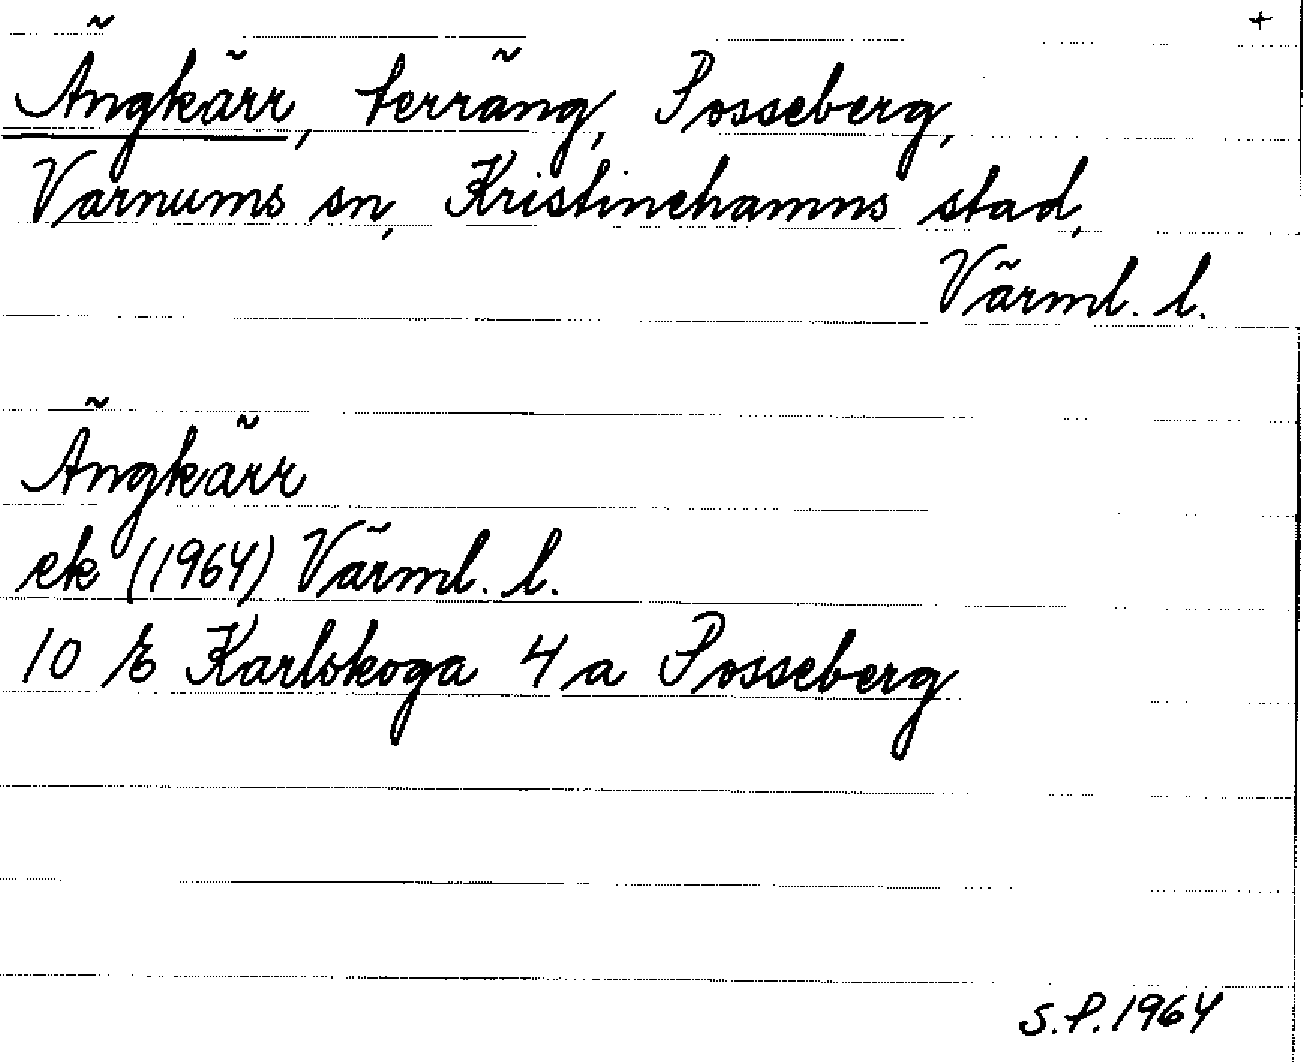 +
Ängkärr, terräng, Posseberg,
Varnums sn, Kristinehamns stad,
Värml. l.
Ängkärr
ek (1964) Värml. l.
10 E Karlskoga 4 a Posseberg
S.P. 1964